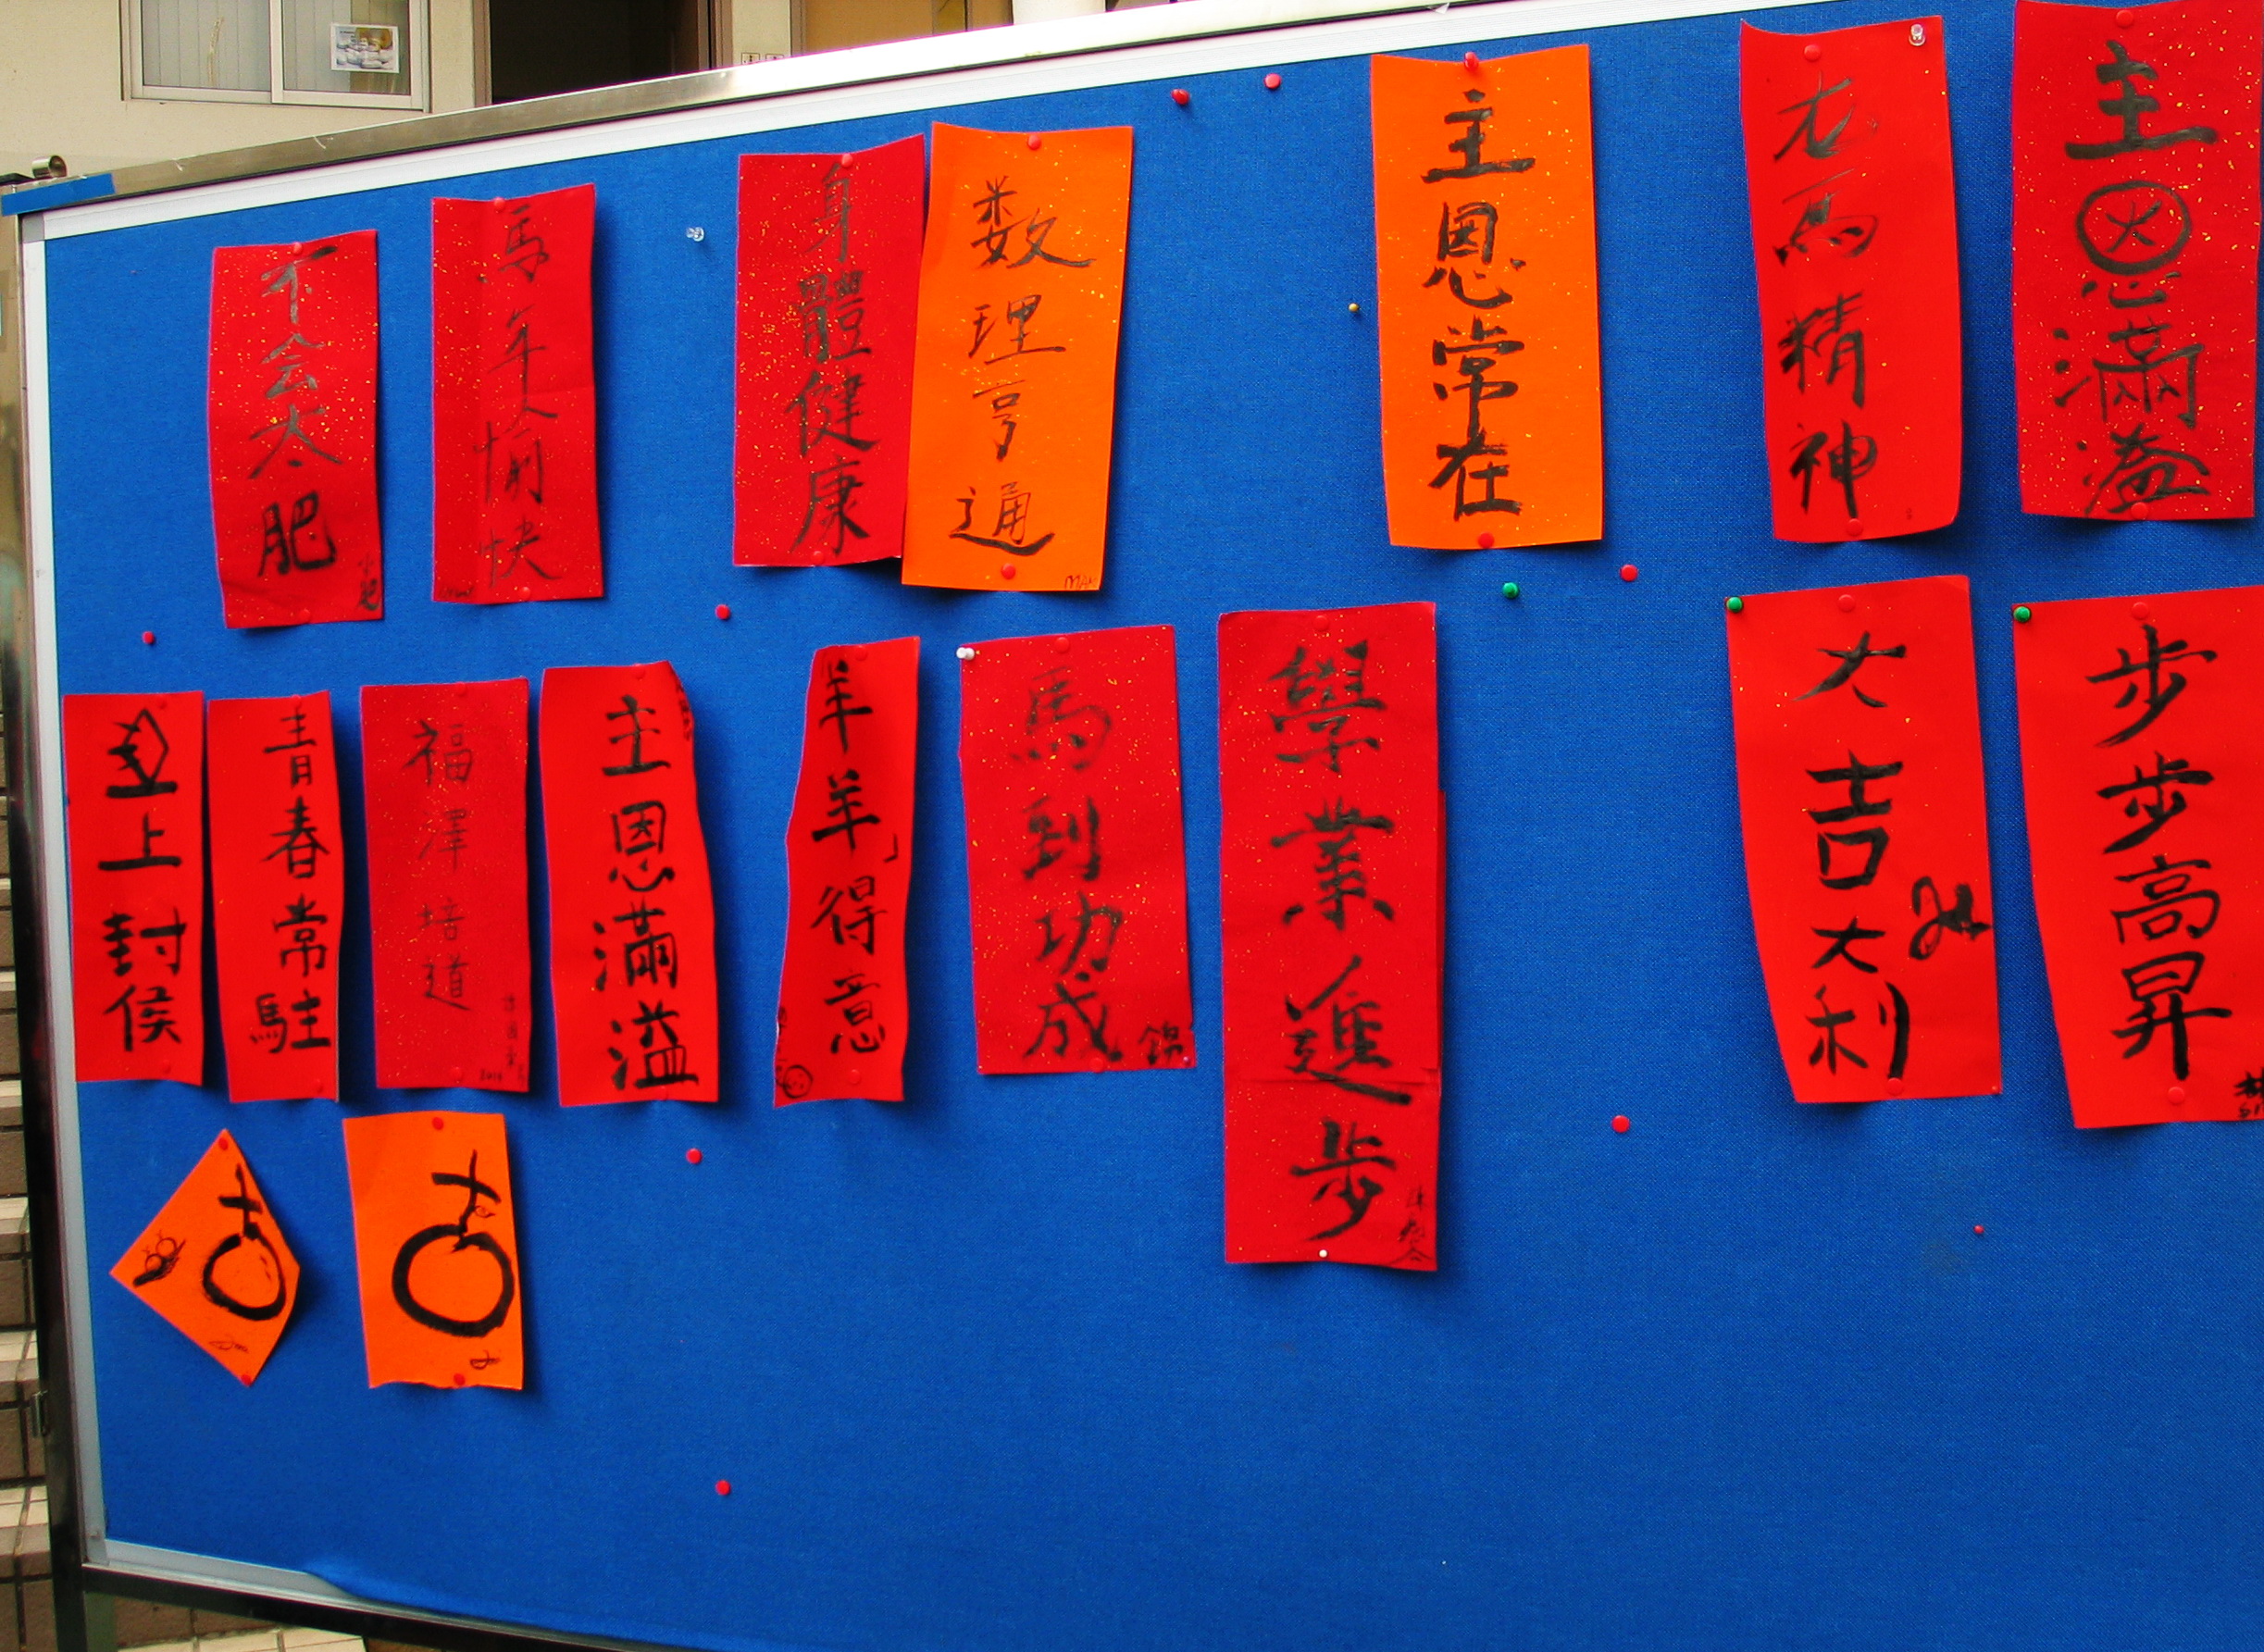 不会太肥
小肥
馬年人愉快
身體健康
数理亨通
MAK
主恩常在
尤馬精神
主恩滿溢
上封侯
青春常駐
福澤培道
2014
主恩滿溢
羊羊得意
馬到功成
錦
學業進步
大吉大利
步步高昇
林
吉
吉